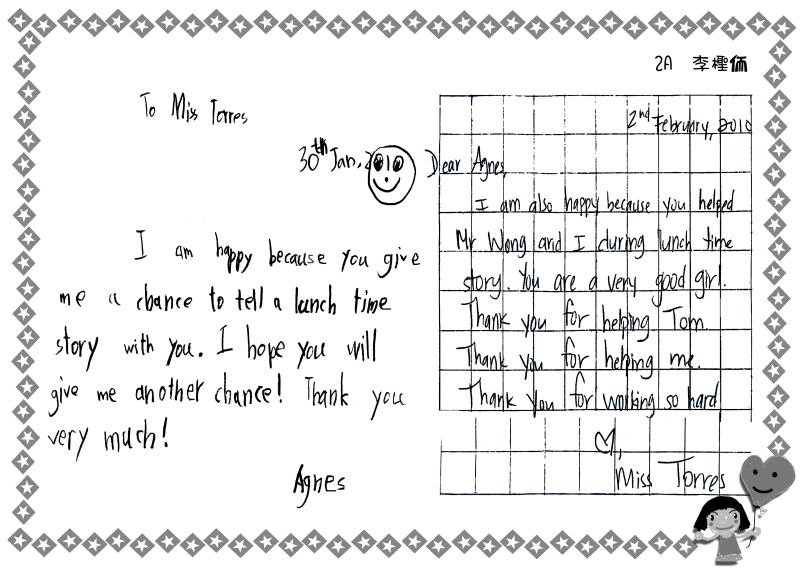 2A 李
To Miss Torres
30th Jan, 2
I am happy because you give
me a chance to tell a lunch time
story with you. I hope you will
give me another chance! Thank you
very much!
Agnes
2nd February, 2010
Dear Agnes,
I am also happy because you helped
Mr Wong and I during lunch time
story. You are a very good girl.
Thank you for helping Tom.
Thank you for helping me.
Thank you for working so hard
Miss Torres